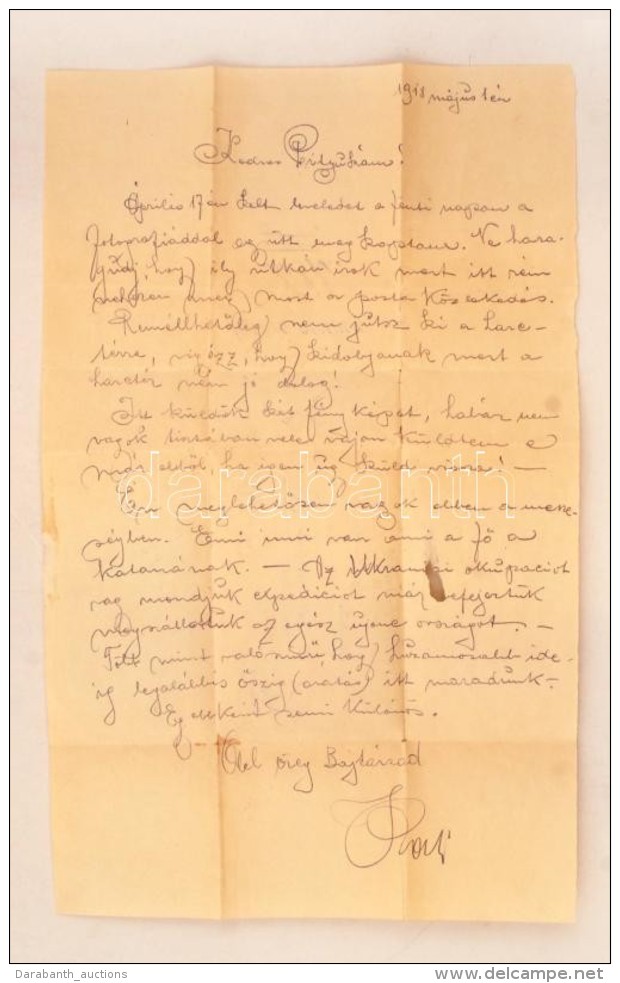 1918 május 1én
Kedves
Április 17én kelt leveledet a fenti napon a
fotografiáddal együtt meg kaptam. Ne hara-
gudj, hogy ily ritkán irok mert itt rém
nehezen megy most a posta közlekedés.
Remélhetőleg nem jutsz ki a harc-
térre, vigyázz, hogy kidobjanak mert a
harctér nem jó dolog!
Itt küldök két fényképet, habár nem
vagok tisztában vele vajon küldtem e
már ebből, ha igen úgy küld vissza! —
Én meglehetősen vagok ebben a mele-
ségben. Enni inni van ami a fő a
katonának. — Az Ukraniai okupaciót
vag mondjuk expediciót már befejeztük
megszállottuk az egész ugene országot. —
Tott mint valószinű, hogy huzamosabb ide-
ig legalábbis őszig (aratás) itt maradunk —
Egyébként semi különös.
Ölel öreg Bajtársad
darabanth
Darabanth_auctions